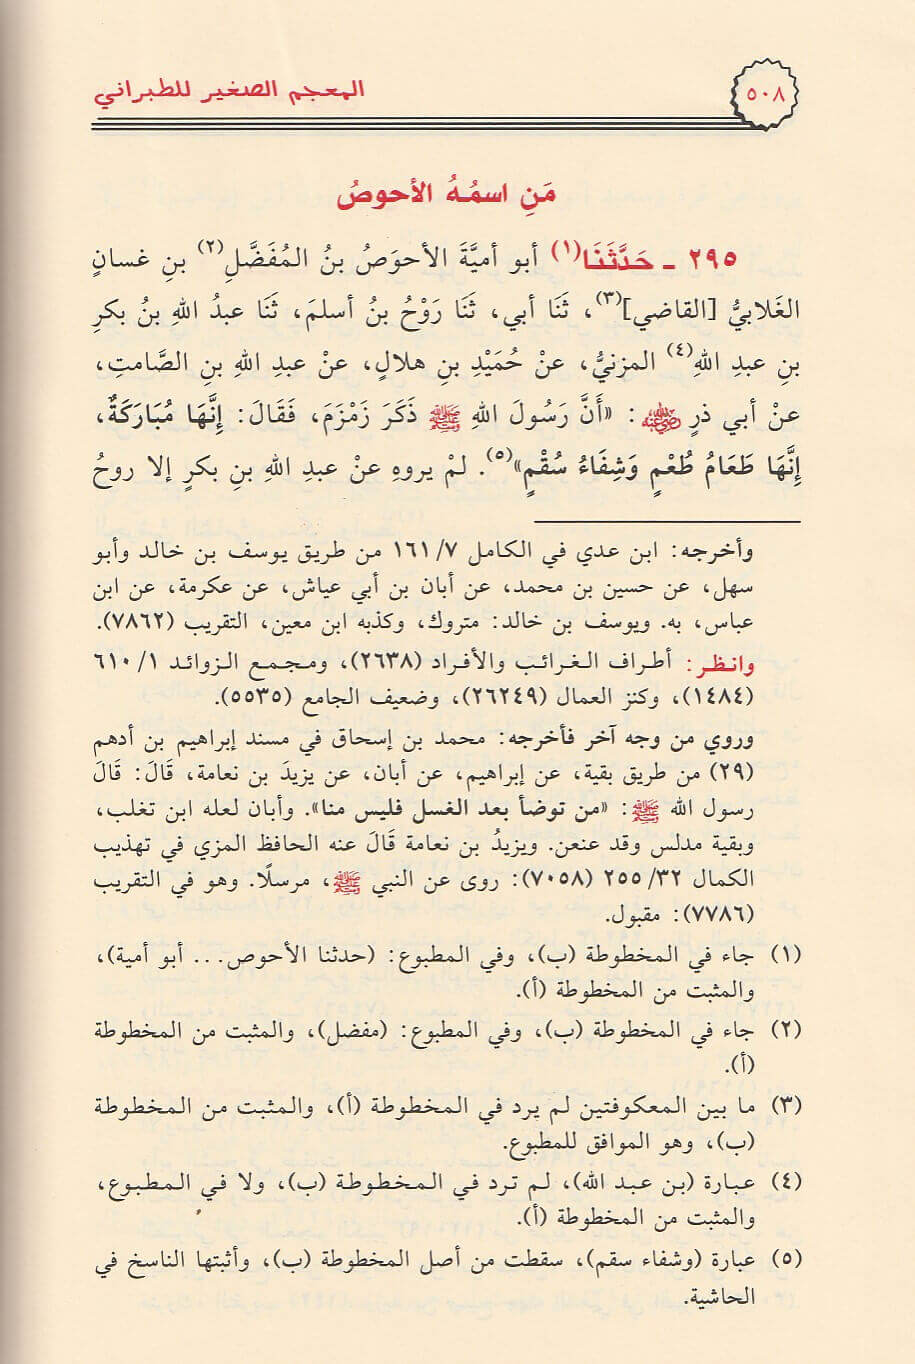 ٥٠٨
المعجم الصغير للطبراني
مَنِ اسمُهُ الأحوصُ
٢٩٥ ـ حَدَّثَنَا(١) أبو أميَّةَ الأحوَصُ بنُ المُفَضَّلِ(٢) بنِ غسانٍ
الغَلابيُّ [القاضي](٣)، ثَنَا أبي، ثَنَا رَوْحُ بنُ أسلمَ، ثَنَا عبدُ اللهِ بنُ بكرِ
بنِ عبدِ اللهِ(٤) المزنيُّ، عنْ حُمَيْدِ بنِ هلالٍ، عنْ عبدِ اللهِ بنِ الصَّامتِ،
عنْ أبي ذرٍ رضي الله عنه: «أَنَّ رَسُولَ اللهِ ﷺ ذَكَرَ زَمْزَمَ، فَقَالَ: إِنَّهَا مُبَارَكَةٌ،
إِنَّهَا طَعَامُ طُعْمٍ وَشِفَاءُ سُقْمٍ»(٥). لمْ يروهِ عنْ عبدِ اللهِ بنِ بكرٍ إلا روحُ
وأخرجه: ابن عدي في الكامل ٧/ ١٦١ من طريق يوسف بن خالد وأبو
سهل، عن حسين بن محمد، عن أبان بن أبي عياش، عن عكرمة، عن ابن
عباس، به. ويوسف بن خالد: متروك، وكذبه ابن معين، التقريب (٧٨٦٢).
وانظر: أطراف الغرائب والأفراد (٢٦٣٨)، ومجمع الزوائد ١/ ٦١٠
(١٤٨٤)، وكنز العمال (٢٦٢٤٩)، وضعيف الجامع (٥٥٣٥).
وروي من وجه آخر فأخرجه: محمد بن إسحاق في مسند إبراهيم بن أدهم
(٢٩) من طريق بقية، عن إبراهيم، عن أبان، عن يزيدَ بن نعامة، قَالَ: قَالَ
رسول الله ﷺ: «من توضأ بعد الغسل فليس منا». وأبان لعله ابن تغلب،
وبقية مدلس وقد عنعن. ويزيدُ بن نعامة قَالَ عنه الحافظ المزي في تهذيب
الكمال ٣٢/ ٢٥٥ (٧٠٥٨): روى عن النبي ﷺ، مرسلًا. وهو في التقريب
(٧٧٨٦): مقبول.
(١) جاء في المخطوطة (ب)، وفي المطبوع: (حدثنا الأحوص... أبو أمية)،
والمثبت من المخطوطة (أ).
(٢) جاء في المخطوطة (ب)، وفي المطبوع: (مفضل)، والمثبت من المخطوطة
(أ).
(٣) ما بين المعكوفتين لم يرد في المخطوطة (أ)، والمثبت من المخطوطة
(ب)، وهو الموافق للمطبوع.
(٤) عبارة (بن عبد الله)، لم ترد في المخطوطة (ب)، ولا في المطبوع،
والمثبت من المخطوطة (أ).
(٥) عبارة (وشفاء سقم)، سقطت من أصل المخطوطة (ب)، وأثبتها الناسخ في
الحاشية.